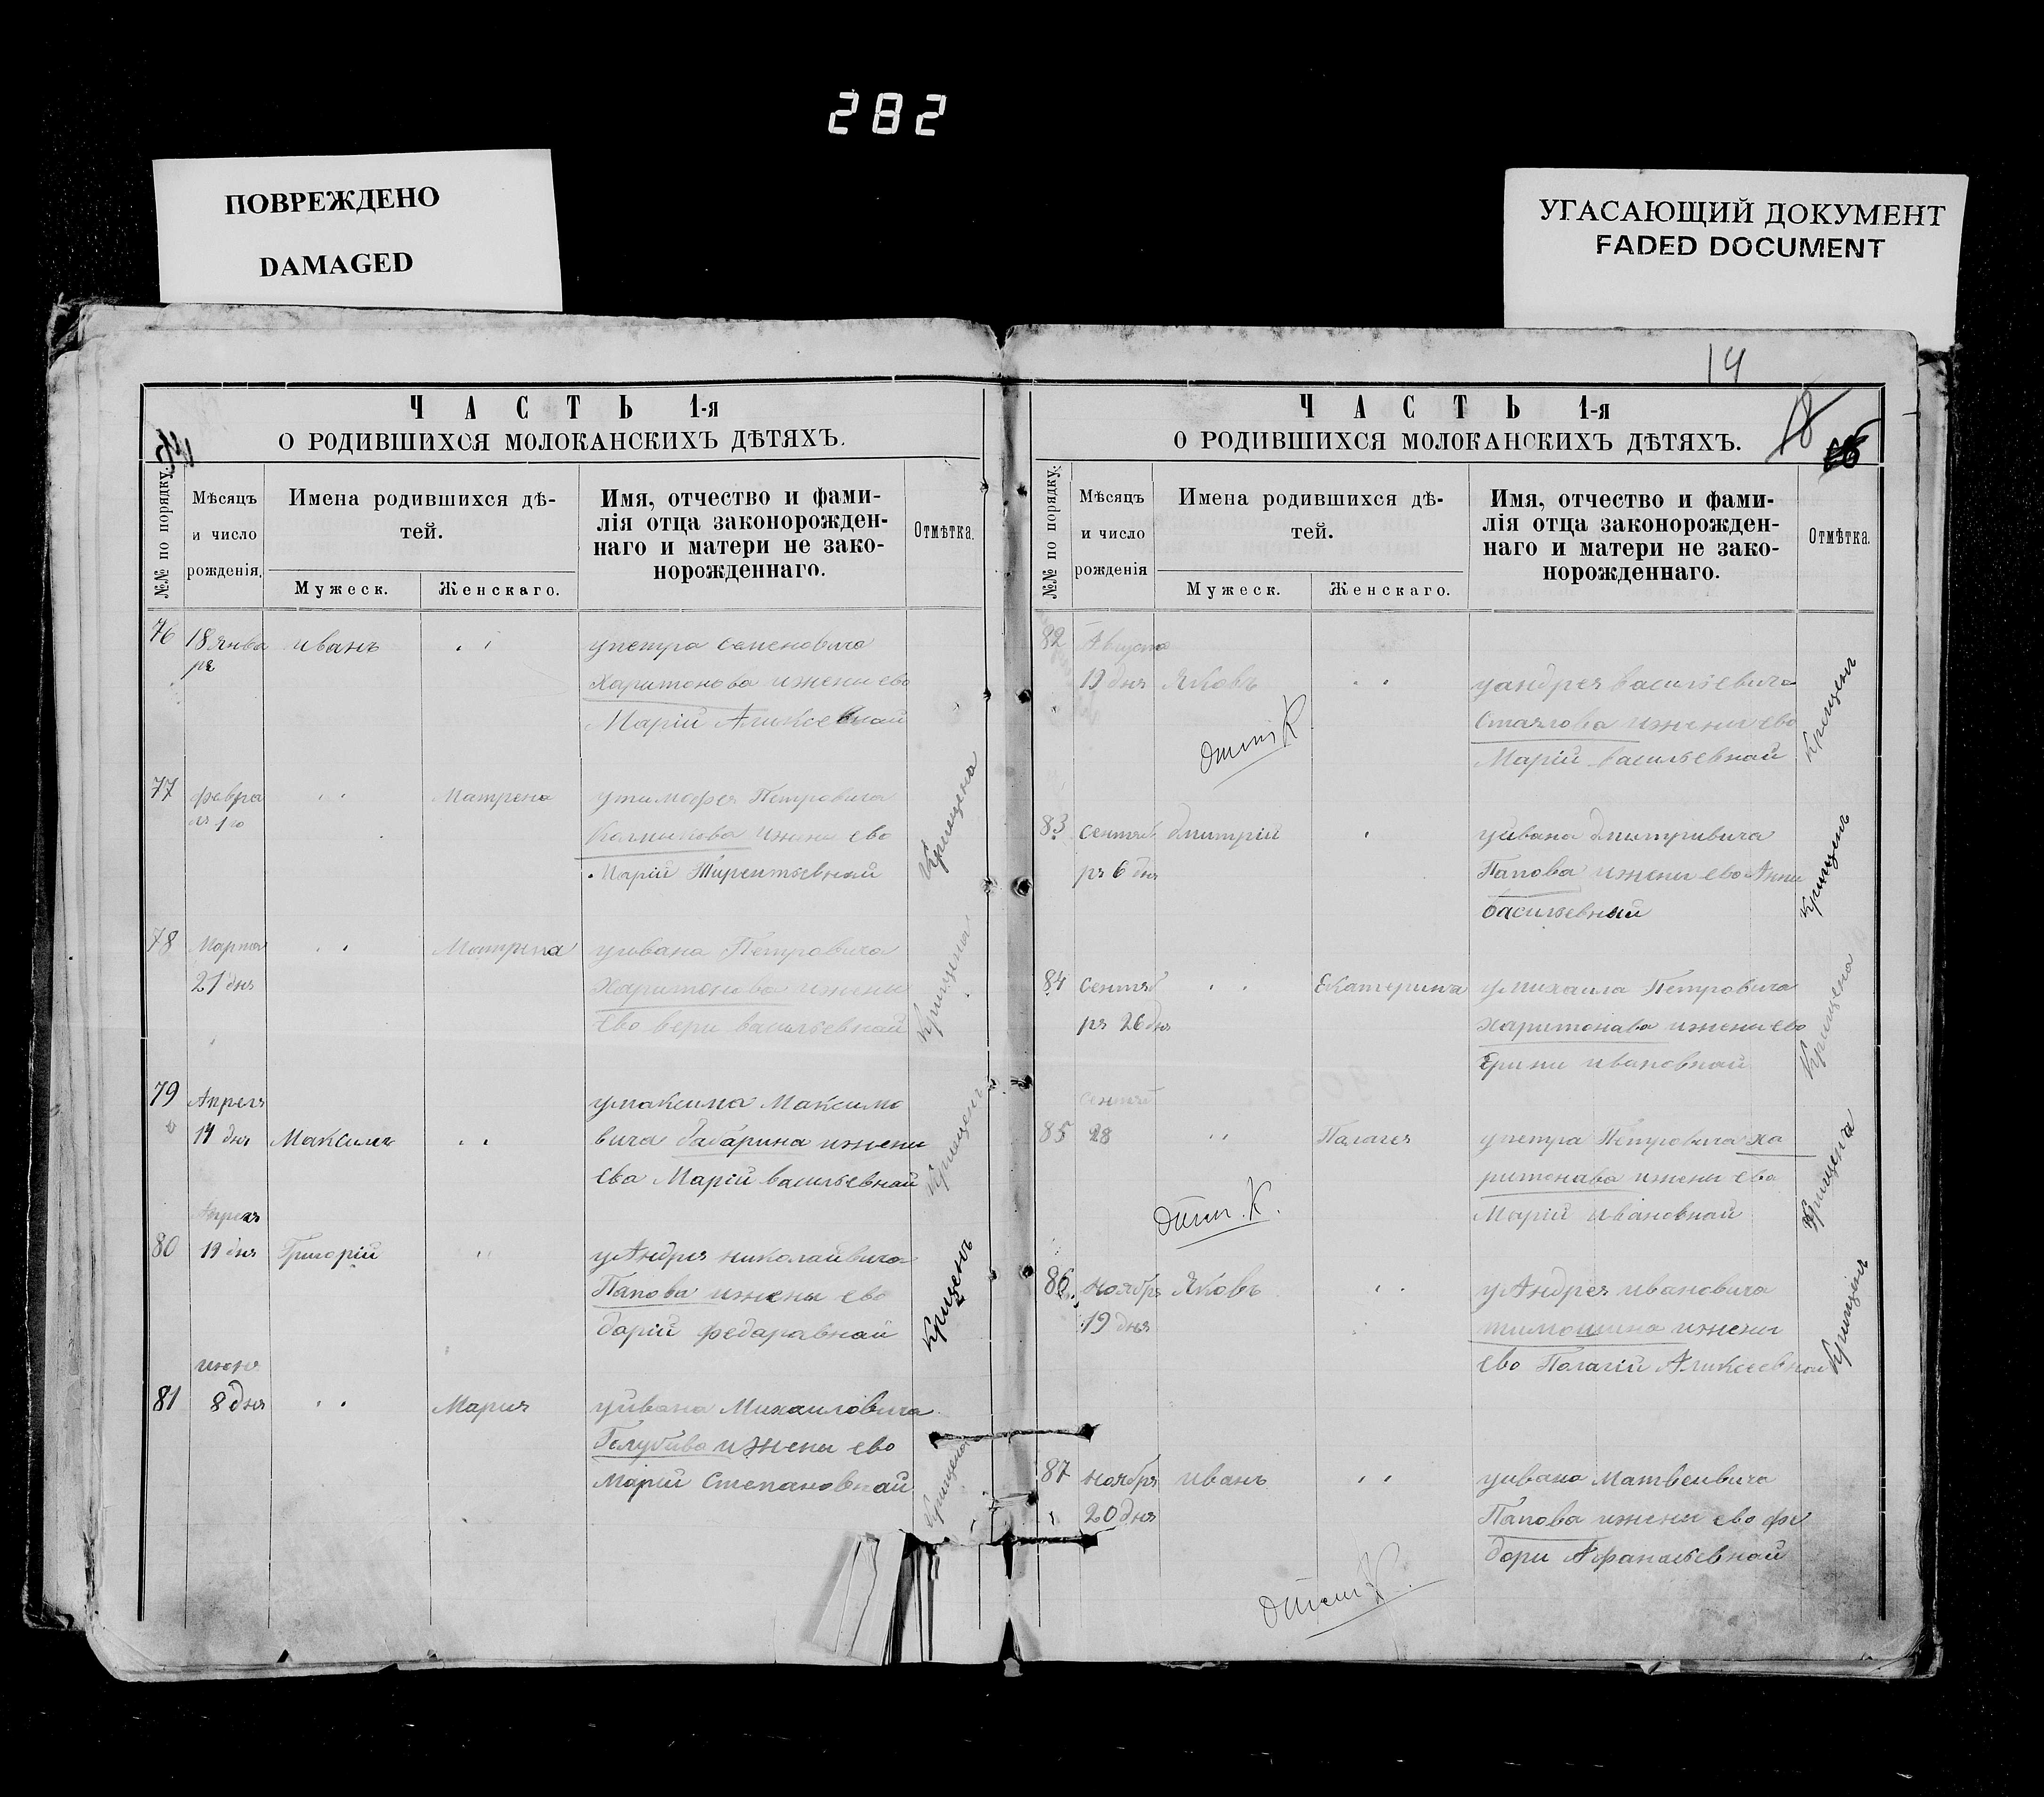 282
ПОВРЕЖДЕНО
DAMAGED
УГАСАЮЩИЙ ДОКУМЕНТ
FADED DOCUMENT
ЧАСТЬ 1-я
О РОДИВШИХСЯ МОЛОКАНСКИХЪ ДѢТЯХЪ.
№№ по порядку.
Мѣсяцъ
и число
рожденія.
Имена родившихся дѣ-
тей.
Мужеск.
Женскаго.
Имя, отчество и фами-
лія отца законорожден-
наго и матери не зако-
норожденнаго.
Отмѣтка.
76 18 Янва иванъ уПетра семеновича
ря
Харитонова ижени ево
Марій Аликсевнай
77 февра Матрена утимофея Петровича
ля 1го
ижени ево
Марій Тирентьевнай
Крищена
78 Марта Матрена уивана Петровича
21 дня Харитонова ижени
ево вери васильевнай
Крищена
79 Апреля умаксима Максимо
14 дня Максимъ вича бабарина ижени
ева Марій васильевнай
Крищенъ
Апреля
80 19 дня Григорій уАндрея николайвича
Папова ижены ево
дарій федаравнай
Крищенъ
июня
81 8 дня Мария уивана Михаиловича
Голубива ижены ево
Марій Степановнай
Крищена
14
18
ЧАСТЬ 1-я
О РОДИВШИХСЯ МОЛОКАНСКИХЪ ДѢТЯХЪ.
№№ по порядку.
Мѣсяцъ
и число
рожденія
Имена родившихся дѣ-
тей.
Мужеск.
Женскаго.
Имя, отчество и фами-
лія отца законорожден-
наго и матери не зако-
норожденнаго.
Отмѣтка.
82 Августа
19 дня Яковъ уандрея васильевича
ижени ево
Марій васильевнай
Крищенъ
83 Сентяб дмитрій уивана дмитривича
ря 6 дня Папова ижени ево Анни
васильевнай
Крищенъ
84 Сентяб Екатерина уМихаила Петровича
ря 26 дня Харитонава ижени ево
Ерини ивановнай
Крищена
Сентяб
85 28 Палагея уПетра Петровича ха
ритонава ижени ева
Марій ивановнай
Крищена
86 ноября Яковъ уАндрея ивановича
19 дня тимошина ижены
ево Палагій Аликсевнай
Крищенъ
87 ноября иванъ уивана Матвеивича
20 дня Папова ижены ево фе
дори Афанасьевнай